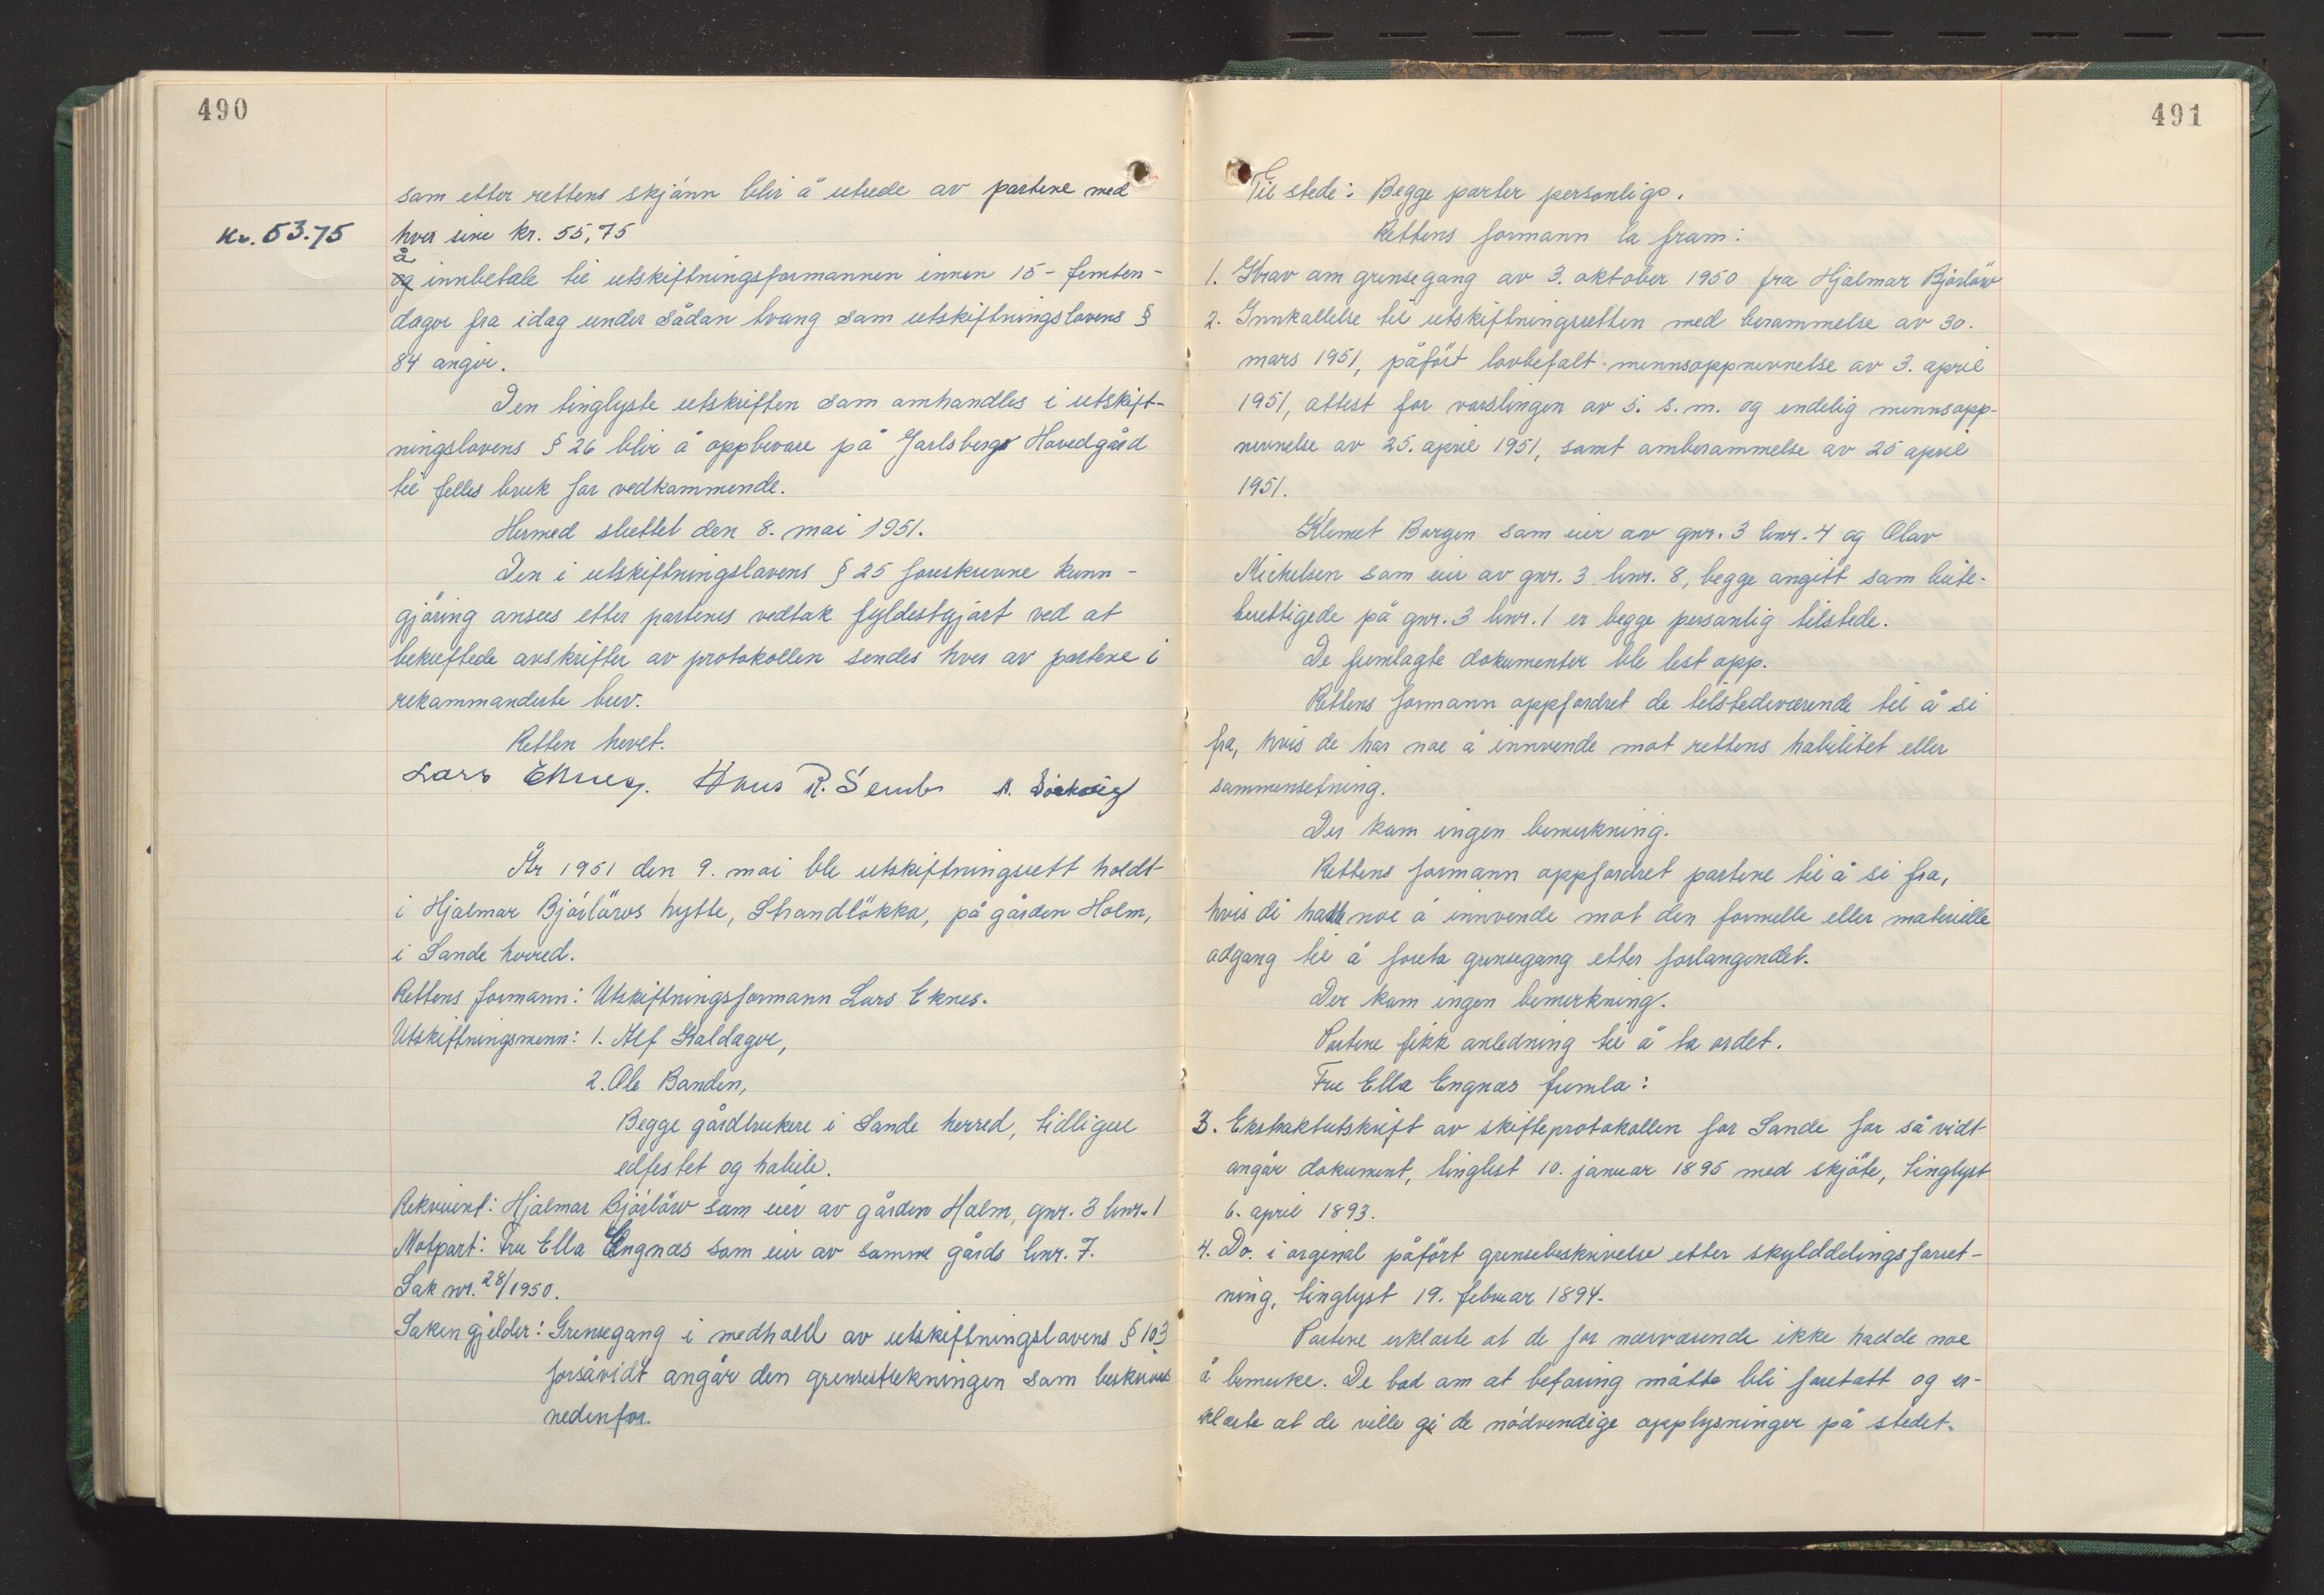 490
som etter rettens skjønn blir å utrede av partene med
Kr. 53.75
hver sine kr. 55,75
å
og innbetale til utskiftningsformannen innen 15 - femten -
dager fra idag under sådan tvang som utskiftningslovens §
84 angir.
Den tinglyste utskriften som omhandles i utskift-
ningslovens § 26 blir å oppbevare på Jarlsberg Hovedgård
til felles bruk for vedkommende.
Hermed sluttet den 8. mai 1951.
Den i utskiftningslovens § 25 foreskrevne kunn-
gjöring ansees etter partenes vedtak fyldestgjort ved at
bekreftede avskrifter av protokollen sendes hver av partene i
rekommanderte brev.
Retten hevet.
Lars Eknes. Hans R. Semb
År 1951 den 9. mai ble utskiftningsrett holdt
i Hjalmar Bjórlöws hytte, Strandlökka, på gården Holm,
i Sande herred.
Rettens formann: Utskiftningsformann Lars Eknes.
Utskiftningsmenn: 1. Alf Haldager,
2. Ole Banden,
Begge gårdbrukere i Sande herred, tidligere
edfestet og habile.
Rekvirent: Hjalmar Bjórlöw som eier av gården Holm, gnr. 3 bnr. 1
Motpart: Fru Ella Engnæs som eier av samme gårds bnr. 7.
Sak nr. 28/1950.
Saken gjelder: Grensegang i medhold av utskiftningslovens § 103
forsåvidt angår den grensestrekningen som beskrives
nedenfor.
491
Til stede: Begge parter personlig.
Rettens formann la fram:
1. Krav om grensegang av 3. oktober 1950 fra Hjalmar Bjórlöw
2. Innkallelse til utskiftningsretten med berammelse av 30.
mars 1951, påfört lovbefalt mennsoppnevnelse av 3. april
1951, attest for varslingen av 5. s. m. og endelig mennsopp-
nevnelse av 25. april 1951, samt omberammelse av 25 april
1951.
Klemet Borgen som eier av gnr. 3 bnr. 4 og Olav
Michelsen som eier av gnr. 3 bnr. 8, begge angitt som beite-
berettigede på gnr. 3 bnr. 1 er begge personlig tilstede.
De fremlagte dokumenter ble lest opp.
Rettens formann oppfordret de tilstedeværende til å si
fra, hvis de har noe å innvende mot rettens habilitet eller
sammensetning.
Der kom ingen bemerkning.
Rettens formann oppfordret partene til å si fra,
hvis di hadde noe å innvende mot den formelle eller materielle
adgang til å foreta grensegang etter forlangendet.
Der kom ingen bemerkning.
Partene fikk anledning til å ta ordet.
Fru Ella Engnæs fremla:
3. Ekstraktutskrift av skifteprotokollen for Sande for så vidt
angår dokument, tinglest 10. januar 1895 med skjöte, tinglyst
6. april 1893.
4. Do. i orginal påfört grensebeskrivelse etter skylddelingsforret-
ning, tinglyst 19. februar 1894.
Partene erklærte at de for nærværende ikke hadde noe
å bemerke. De bad om at befaring måtte bli foretatt og er-
klærte at de ville gi de nödvendige opplysninger på stedet.